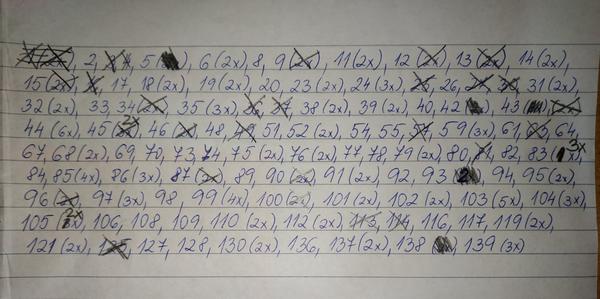 2, 5 6 (2x) 8, 9 11 (2x), 12 13 14 (2x),
15 17, 18 (2x), 19 (2x), 20, 23 (2x), 24 (3x) 26, 31 (2x),
32 (2x), 33, 34 35 (3x) 38 (2x), 39 (2x), 40, 42 43
44 (6x), 45 2x 46 48, 51, 52 (2x), 54, 55, 59 (3x), 61, 64,
67, 68 (2x), 69, 70, 73, 74, 75 (2x), 76 (2x), 77, 78, 79 (2x), 80, 82, 83 3x
84, 85 (4x), 86 (3x), 87 89, 90 91 (2x), 92, 93 94, 95 (2x),
96 97 (3x), 98, 99 (4x), 100 101 (2x), 102 (2x), 103 (5x), 104 (3x),
105 2x 106, 108, 109, 110 (2x), 112 (2x), 116, 117, 119 (2x),
121 (2x), 127, 128, 130 (2x), 136, 137 (2x), 138 139 (3x)